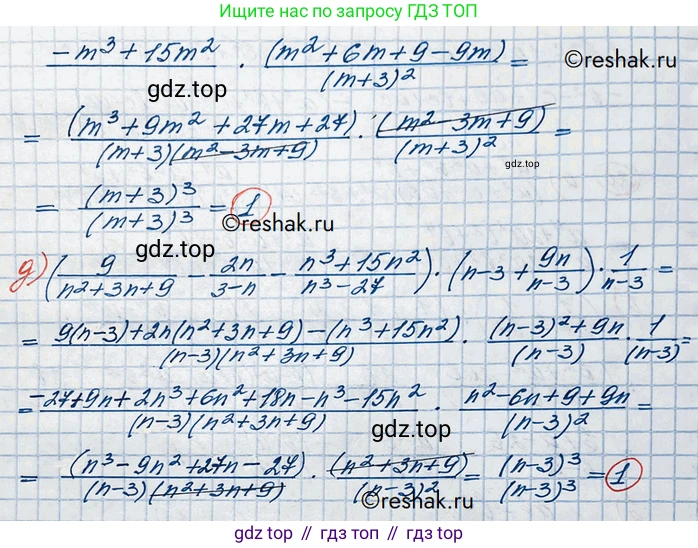 Ищите нас по запросу ГДЗ ТОП
(-m³+15m²)/ · (m²+6m+9-9m)/(m+3)² =
gdz.top
©reshak.ru
= (m³+9m²+27m+27)/(m+3)(m²-3m+9) · (m²-3m+9)/(m+3)² =
gdz.top
= (m+3)³/(m+3)³ = 1
©reshak.ru
gdz.top
©reshak.ru
д) (9/(n²+3n+9) - 2n/(3-n) - (n³+15n²)/(n³-27)) · (n-3+9n/(n-3)) · 1/(n-3) =
= (9(n-3)+2n(n²+3n+9)-(n³+15n²))/(n-3)(n²+3n+9) · ((n-3)²+9n)/(n-3) · 1/(n-3) =
= (-27+9n+2n³+6n²+18n-n³-15n²)/(n-3)(n²+3n+9) · (n²-6n+9+9n)/(n-3)² =
gdz.top
= (n³-9n²+27n-27)/(n-3)(n²+3n+9) · (n²+3n+9)/(n-3)² = (n-3)³/(n-3)³ = 1
©reshak.ru
gdz top // gdz.top // gdz.top // gdz.top